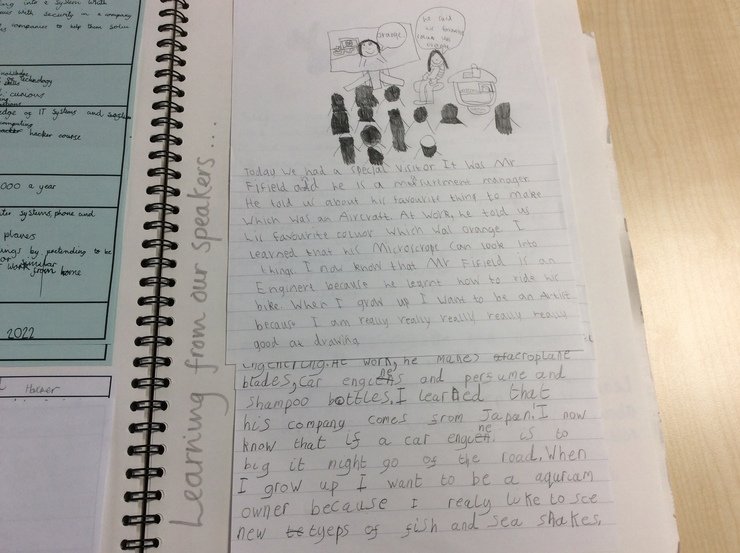 ing into a system with
with security in a company
companies to help them solve
technology
curious
edge of IT systems and
computing
hacker course
000 a year
systems, phone and
players
ings by pretending to be
or
work from home
2022
Hacker
Learning from our speakers...
orange
he said
his favourite
colour was
orange
Today we had a special visitor It was Mr
Fifield and he is a mesurement manager
He told us about his favourite thing to make
which was an Aircraft. At work, he told us
his favourite colour which was orange. I
learned that his Microscope can look into
things I now know that Mr Fifield is an
Enginert because he learnt how to ride his
bike. When I grow up I want to be an Artist
because I am really really really really really
good at drawing
engenering. At work, he makes aeroplane
blades, car engcens and perfume and
shampoo bottles. I learned that
his company comes from Japan. I now
know that if a car engcene is to
big it might go of the road. When
I grow up I want to be a aquriam
owner because I realy like to see
new tyeps of fish and sea snakes.